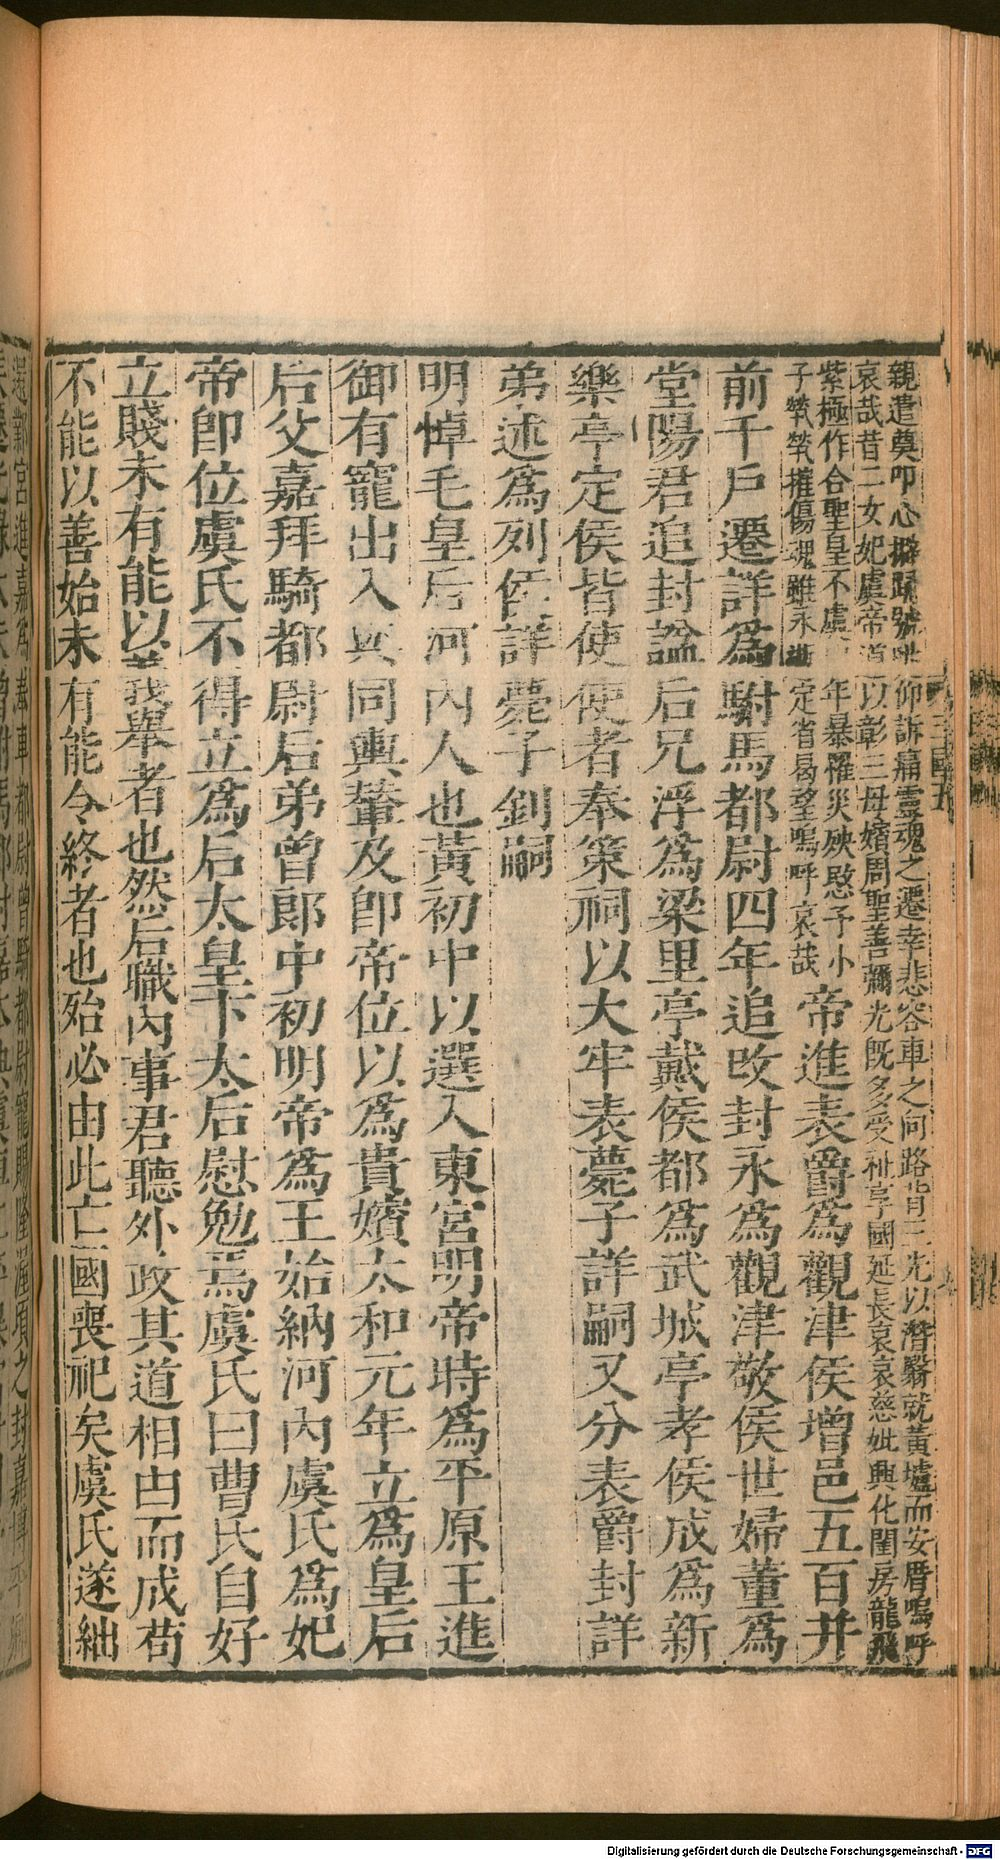 親遣奠叩心擗踊號咷仰訴痛靈魂之遷幸悲容車之向路背三光以潛翳就黃壚而安厝嗚呼
哀哉昔二女妃虞帝道以彰三母嬪周聖善彌光旣多受祉享國延長哀哀慈妣興化閨房龍飛
紫極作合聖皇不虞 年暴罹災殃愍予小
子煢煢摧傷魂雖永逝定省曷望嗚呼哀哉
帝進表爵爲觀津侯增邑五百并
前千戶遷詳爲駙馬都尉四年追改封永爲觀津敬侯世婦董爲
堂陽君追封謚后兄浮爲梁里亭戴侯都爲武城亭孝侯成爲新
樂亭定侯皆使使者奉策祠以大牢表薨子詳嗣又分表爵封詳
弟述爲列侯詳薨子釗嗣
明悼毛皇后河內人也黃初中以選入東宮明帝時爲平原王進
御有寵出入與同輿輦及卽帝位以爲貴嬪太和元年立爲皇后
后父嘉拜騎都尉后弟曾郎中初明帝爲王始納河內虞氏爲妃
帝卽位虞氏不得立爲后太皇卞太后慰勉焉虞氏曰曹氏自好
立賤未有能以義舉者也然后職內事君聽外政其道相由而成苟
不能以善始未有能令終者也殆必由此亡國喪祀矣虞氏遂絀
還鄴宮進嘉爲奉車都尉曾騎都尉寵賜隆渥頃之封嘉博平鄉
Digitalisierung gefördert durch die Deutsche Forschungsgemeinschaft - DFG